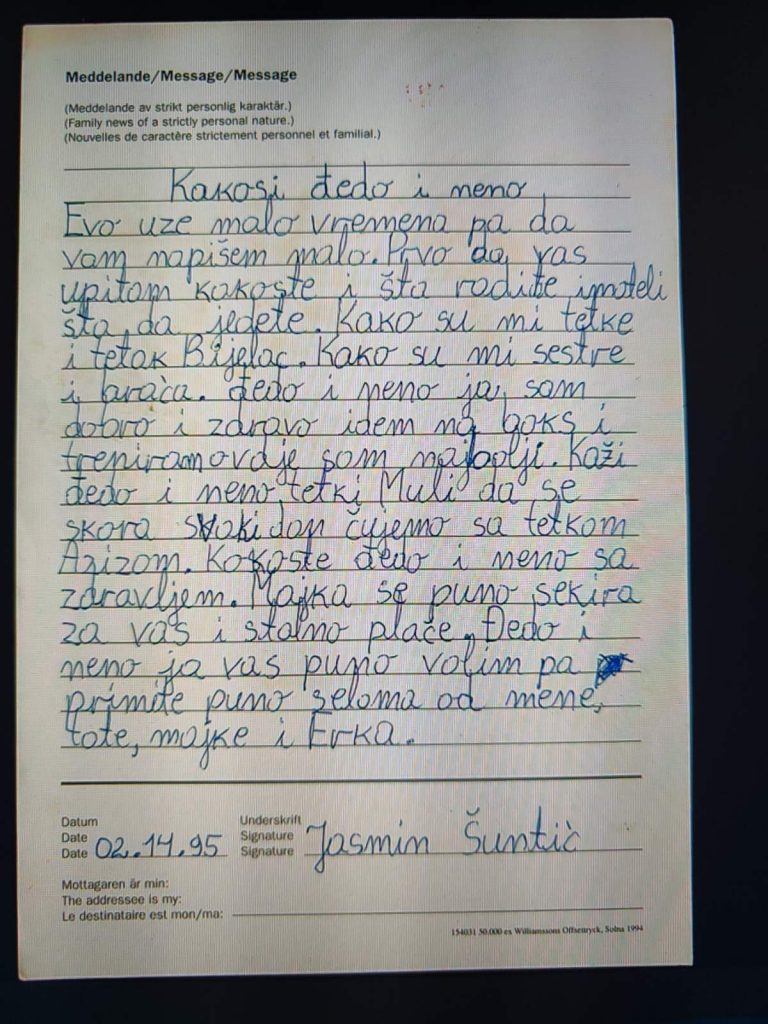 Meddelande/Message/Message
(Meddelande av strikt personlig karaktär.)
(Family news of a strictly personal nature.)
(Nouvelles de caractère strictement personnel et familial.)
Kakosi đedo i neno
Evo uze malo vremena pa da
vam napišem malo. Prvo da vas
upitam kakoste i šta radite imateli
šta da jedete. Kako su mi tetke
i tetak Bijelac. Kako su mi sestre
i braća. Đedo i neno ja sam
dobro i zdravo idem na boks i
treniramovdje sam najbolji. Kaži
đedo i neno tetki Muli da se
skora svaki dan čujemo sa tetkom
Azizom. Kakoste đedo i neno sa
zdravljem. Majka se puno sekira
za vas i stalno plače. Đedo i
neno ja vas puno volim pa
primite puno seloma od mene,
tate, majke i Erka.
Datum
Date
Date 02.14.95
Underskrift
Signature
Signature Jasmin Šuntić
Mottagaren är min:
The addressee is my:
Le destinataire est mon/ma:
154031 50.000 ex Williamssons Offsettryck, Solna 1994